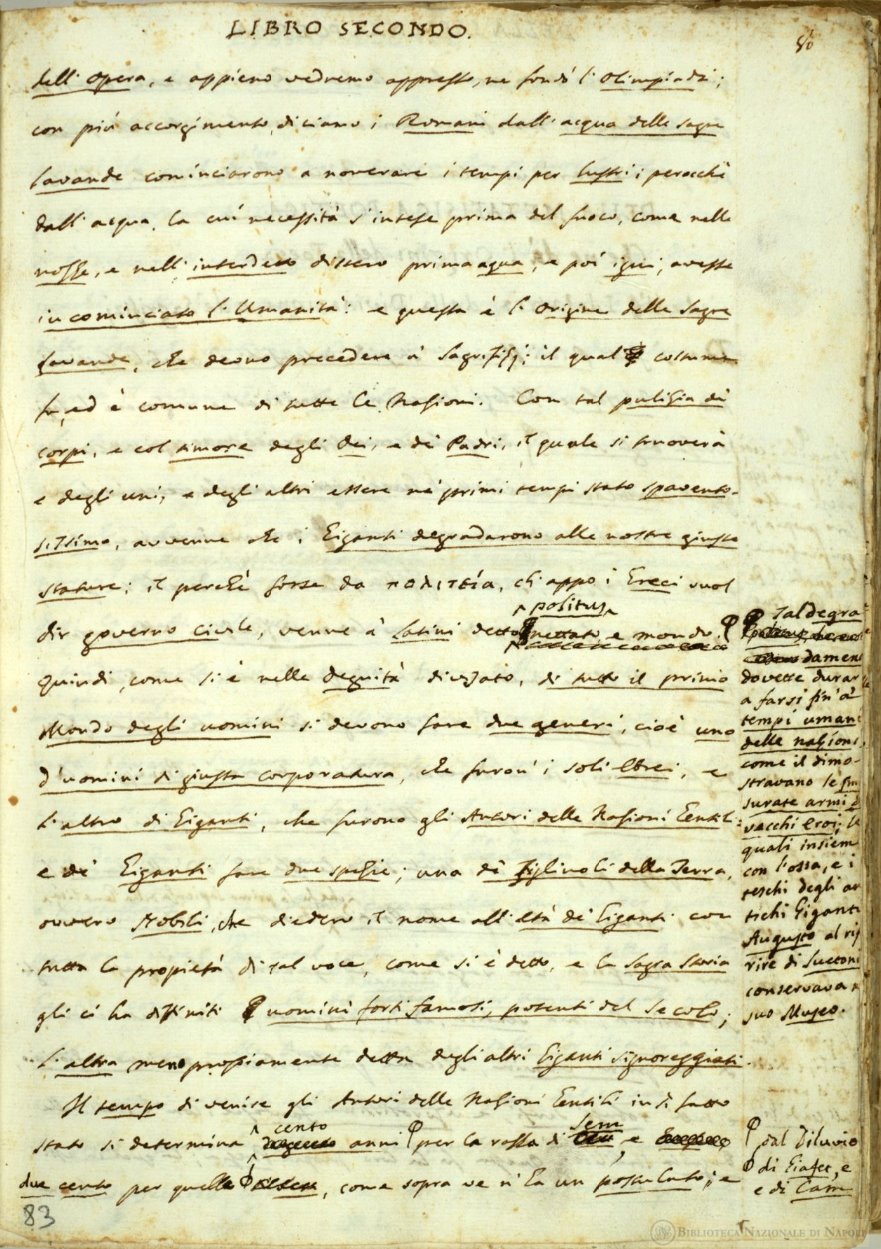 LIBRO SECONDO.
dell'opera, e appieno vedremo appresso, ne fondò l'Olimpiadi;
con più accorgimento diciamo i Romani dall'acqua delle sagre
lavande cominciarono a noverare i tempi per lustri; perocchè
dall'acqua, la cui necessità s'intese prima del fuoco, come nelle
nozze, e nell'interdetto dissero prima aqua, e poi igni, avesse
incominciato l'Umanità: e questa è l'Origine delle Sagre
Lavande, che deono precedere a' Sagrifizj; il qual costume
fu, ed è comune di tutte le Nazioni. Con tal pulizia di
corpi, e col timore degli Dei, e de' Padri, il quale si truoverà
e degli uni, e degli altri essere ne' primi tempi stato spavento-
sissimo, avvenne che i Giganti degradarono alle nostre giuste
stature: il perchè forse da πολιτεία, ch'appo i Greci vuol
politus,
dir governo civile, venne a' Latini detto nettato, e mondo.
Quindi, come si è nelle degnità divisato, di tutto il primo
Mondo degli uomini si devono fare due generi, cioè uno
d'uomini di giusta corporatura, che furon' i soli Ebrei, e
l'altro di Giganti, che furono gli Autori delle Nazioni Gentili:
e de' Giganti fare due spezie; una di Figliuoli della Terra,
ovvero Nobili, che diedero il nome all'Età de' Giganti con
tutta la propietà di tal voce, come si è detto, e la Sagra Storia
gli ci ha diffiniti uomini forti, famosi, potenti del Secolo;
l'altra meno propiamente detta degli altri Giganti signoreggiati.
Il tempo di venire gli Autori delle Nazioni Gentili in sì fatto
cento Sem
stato si determina anni per la razza di, e
due cento per quelle, come sopra ve n'ha un postulato; e
Tal degra
damen
dovette durar
a farsi fin' a'
tempi uman
delle nazioni,
come il dimo-
stravano le smi
surate armi
vecchi Eroi; le
quali insiem
con l'ossa, e i
teschi degli an
tichi Giganti
Augusto al rif
rire di Suetoni
conservava n
suo Museo.
dal Diluvio
di Giafet, e
e di Cam
83
BIBLIOTECA NAZIONALE DI NAPOLI